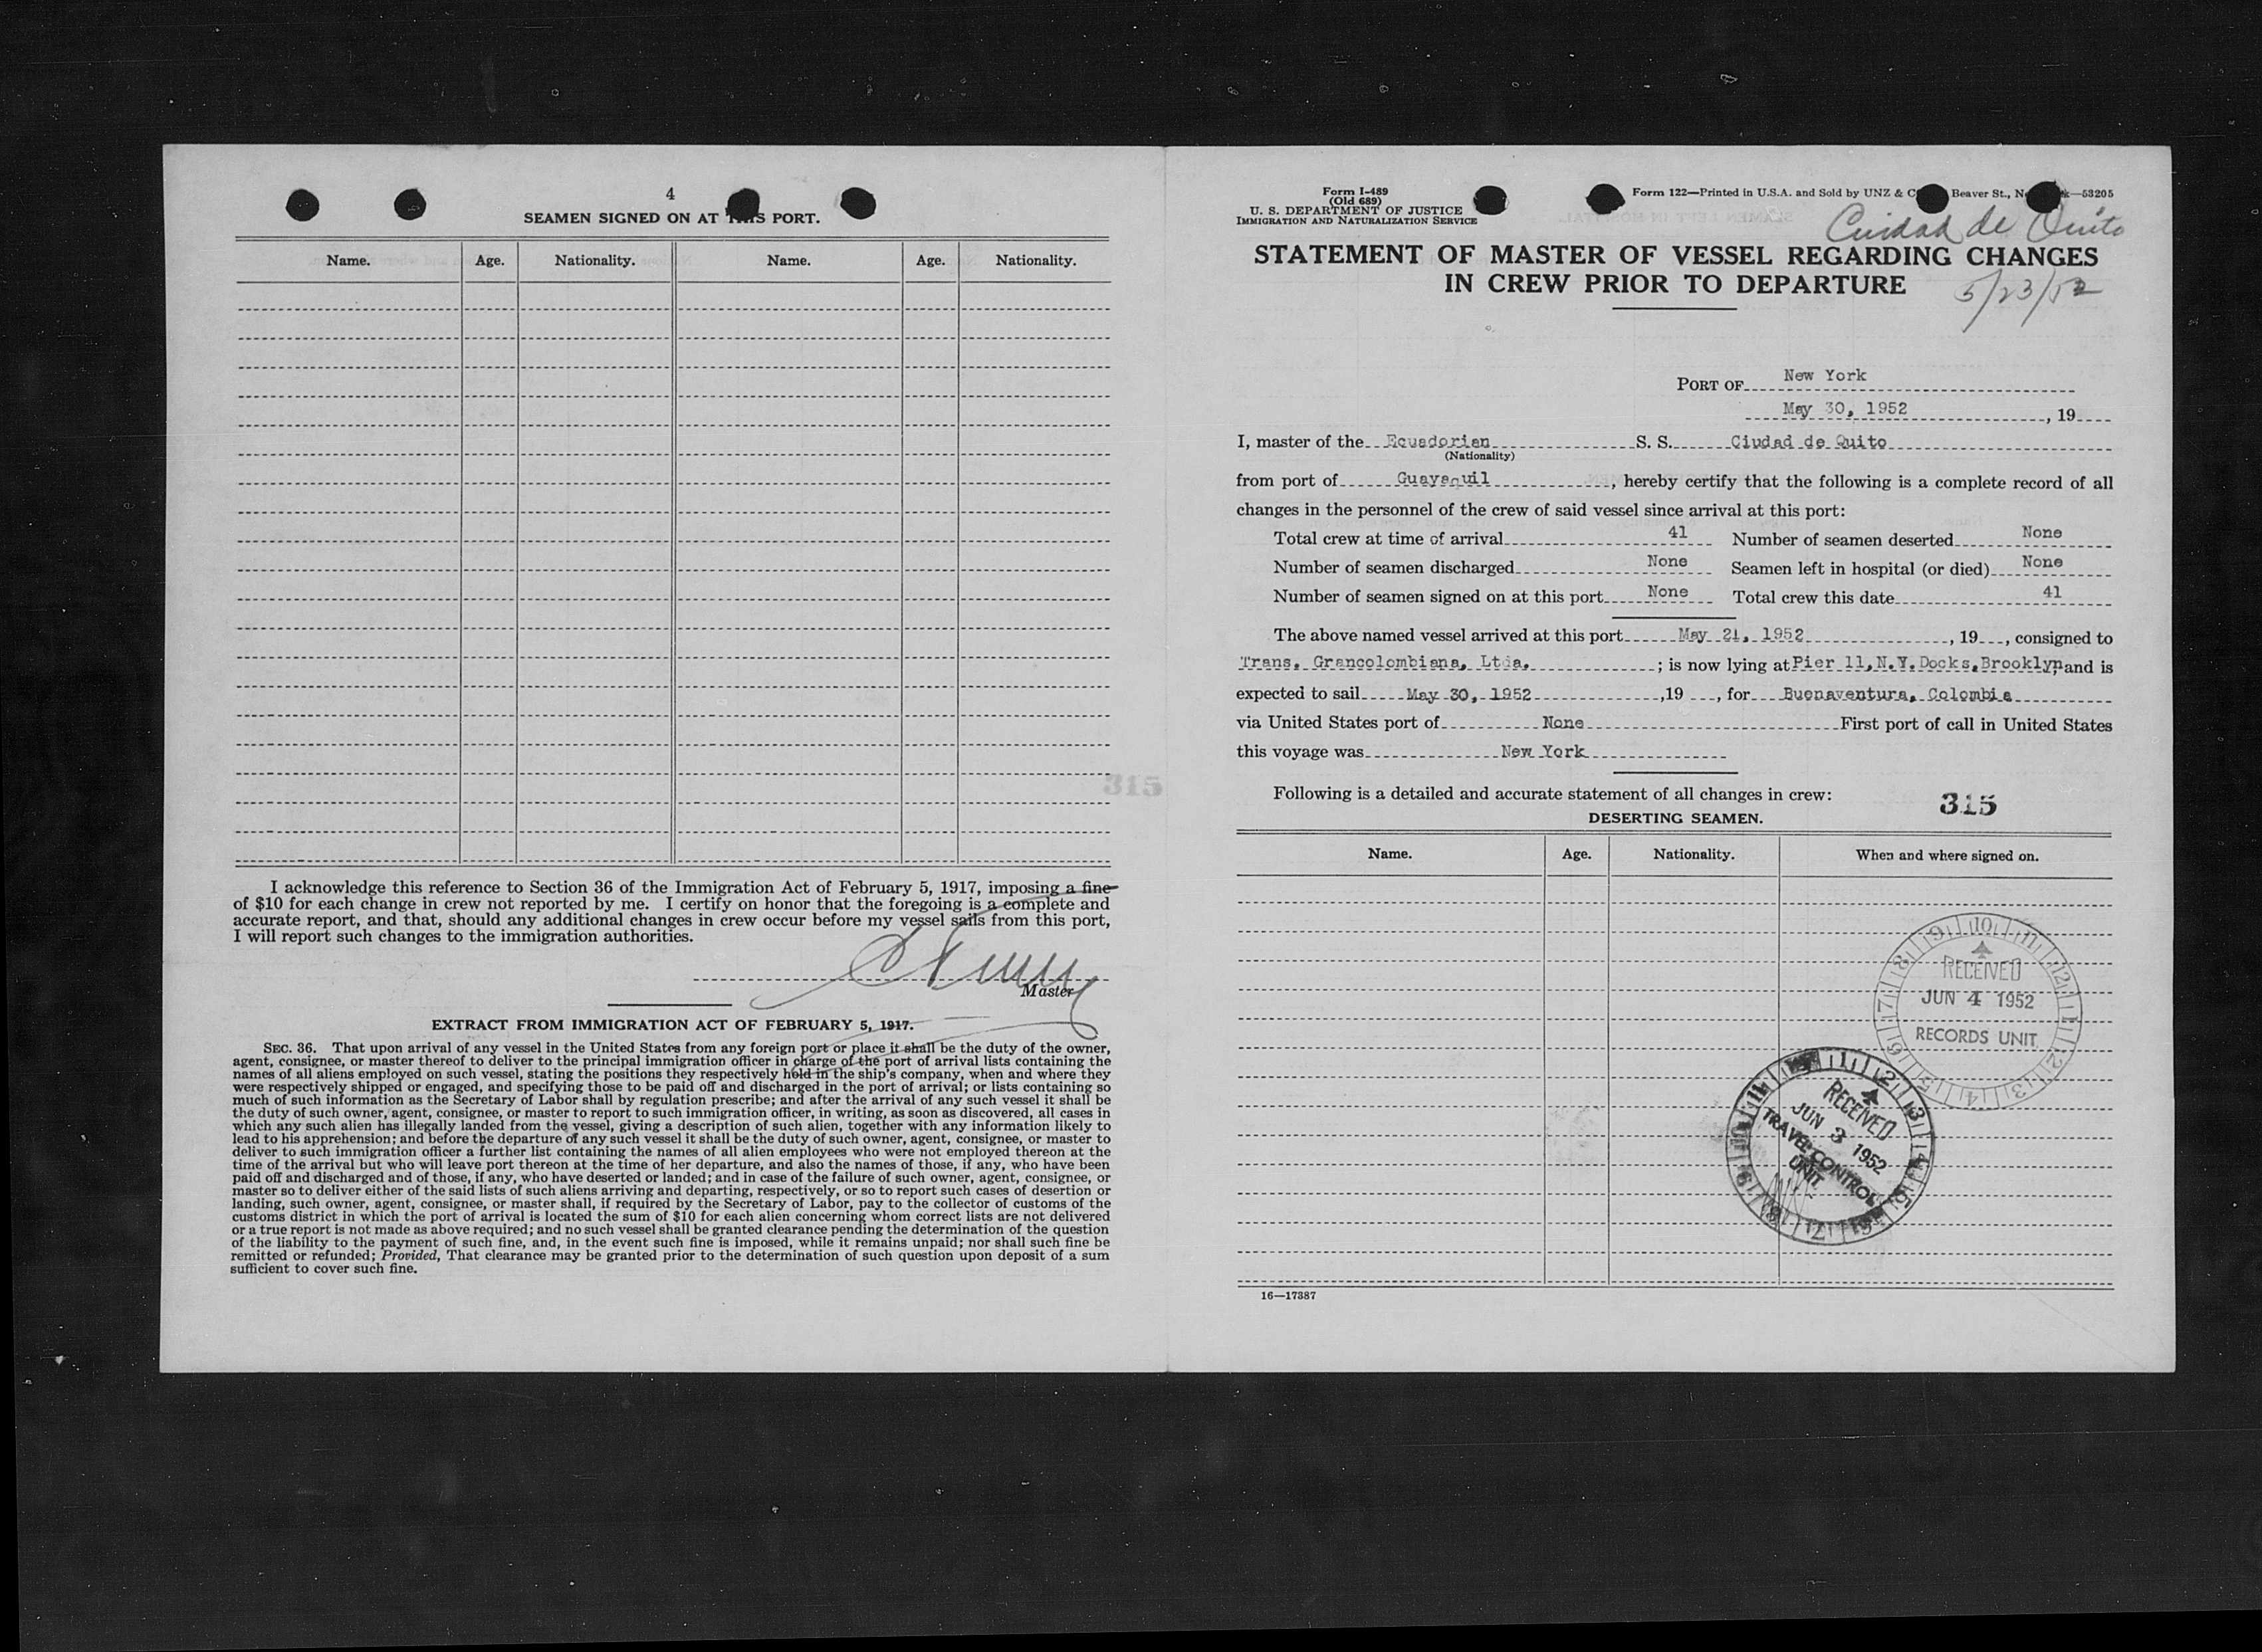 4
SEAMEN SIGNED ON AT THIS PORT.
Name. Age. Nationality. Name. Age. Nationality.
315
I acknowledge this reference to Section 36 of the Immigration Act of February 5, 1917, imposing a fine
of $10 for each change in crew not reported by me. I certify on honor that the foregoing is a complete and
accurate report, and that, should any additional changes in crew occur before my vessel sails from this port,
I will report such changes to the immigration authorities.
Master
EXTRACT FROM IMMIGRATION ACT OF FEBRUARY 5, 1917.
SEC. 36. That upon arrival of any vessel in the United States from any foreign port or place it shall be the duty of the owner,
agent, consignee, or master thereof to deliver to the principal immigration officer in charge of the port of arrival lists containing the
names of all aliens employed on such vessel, stating the positions they respectively hold in the ship's company, when and where they
were respectively shipped or engaged, and specifying those to be paid off and discharged in the port of arrival; or lists containing so
much of such information as the Secretary of Labor shall by regulation prescribe; and after the arrival of any such vessel it shall be
the duty of such owner, agent, consignee, or master to report to such immigration officer, in writing, as soon as discovered, all cases in
which any such alien has illegally landed from the vessel, giving a description of such alien, together with any information likely to
lead to his apprehension; and before the departure of any such vessel it shall be the duty of such owner, agent, consignee, or master to
deliver to such immigration officer a further list containing the names of all alien employees who were not employed thereon at the
time of the arrival but who will leave port thereon at the time of her departure, and also the names of those, if any, who have been
paid off and discharged and of those, if any, who have deserted or landed; and in case of the failure of such owner, agent, consignee, or
master so to deliver either of the said lists of such aliens arriving and departing, respectively, or so to report such cases of desertion or
landing, such owner, agent, consignee, or master shall, if required by the Secretary of Labor, pay to the collector of customs of the
customs district in which the port of arrival is located the sum of $10 for each alien concerning whom correct lists are not delivered
or a true report is not made as above required; and no such vessel shall be granted clearance pending the determination of the question
of the liability to the payment of such fine, and, in the event such fine is imposed, while it remains unpaid; nor shall such fine be
remitted or refunded; Provided, That clearance may be granted prior to the determination of such question upon deposit of a sum
sufficient to cover such fine.
Form I-489
(Old 689)
U. S. DEPARTMENT OF JUSTICE
IMMIGRATION AND NATURALIZATION SERVICE
Form 122—Printed in U.S.A. and Sold by UNZ & Beaver St., 53205
Ciudad de Quito
STATEMENT OF MASTER OF VESSEL REGARDING CHANGES
IN CREW PRIOR TO DEPARTURE
5/23/52
PORT OF New York
May 30, 1952, 19
I, master of the Ecuadorian S. S. Ciudad de Quito
(Nationality)
from port of Guayaquil, hereby certify that the following is a complete record of all
changes in the personnel of the crew of said vessel since arrival at this port:
Total crew at time of arrival 41 Number of seamen deserted None
Number of seamen discharged None Seamen left in hospital (or died) None
Number of seamen signed on at this port None Total crew this date 41
The above named vessel arrived at this port May 21, 1952, 19, consigned to
Trans. Grancolombiana, Ltda.; is now lying at Pier 11, N.Y. Docks, Brooklyn, and is
expected to sail May 30, 1952, 19, for Buenaventura, Colombia
via United States port of None First port of call in United States
this voyage was New York
Following is a detailed and accurate statement of all changes in crew:
315
DESERTING SEAMEN.
Name. Age. Nationality. When and where signed on.
RECEIVED
JUN 4 1952
RECORDS UNIT
RECEIVED
JUN 3 1952
TRAVEL CONTROL
UNIT
16—17387